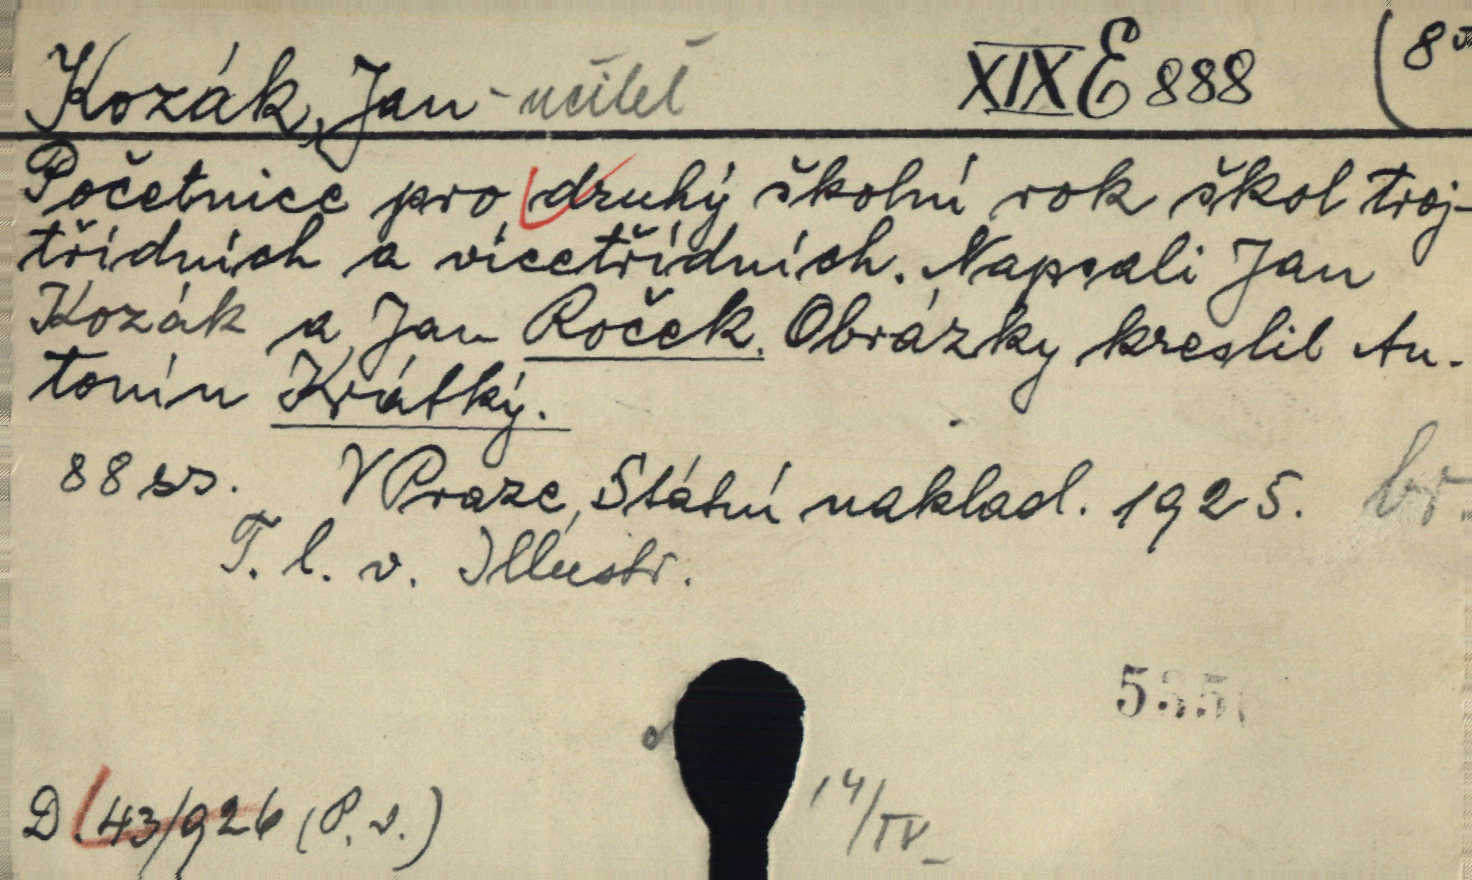 Kozák, Jan - učitel XIX E 888 (8°
Početnice pro druhý školní rok škol troj-
třídních a vícetřídních. Napsali Jan
Kozák a Jan Roček. Obrázky kreslil An-
tonín Krátký.
88 ss. V Praze, Státní naklad. 1925. br.
T. l. v. Illustr.
D. 43/926 (P. v.) 14/IV